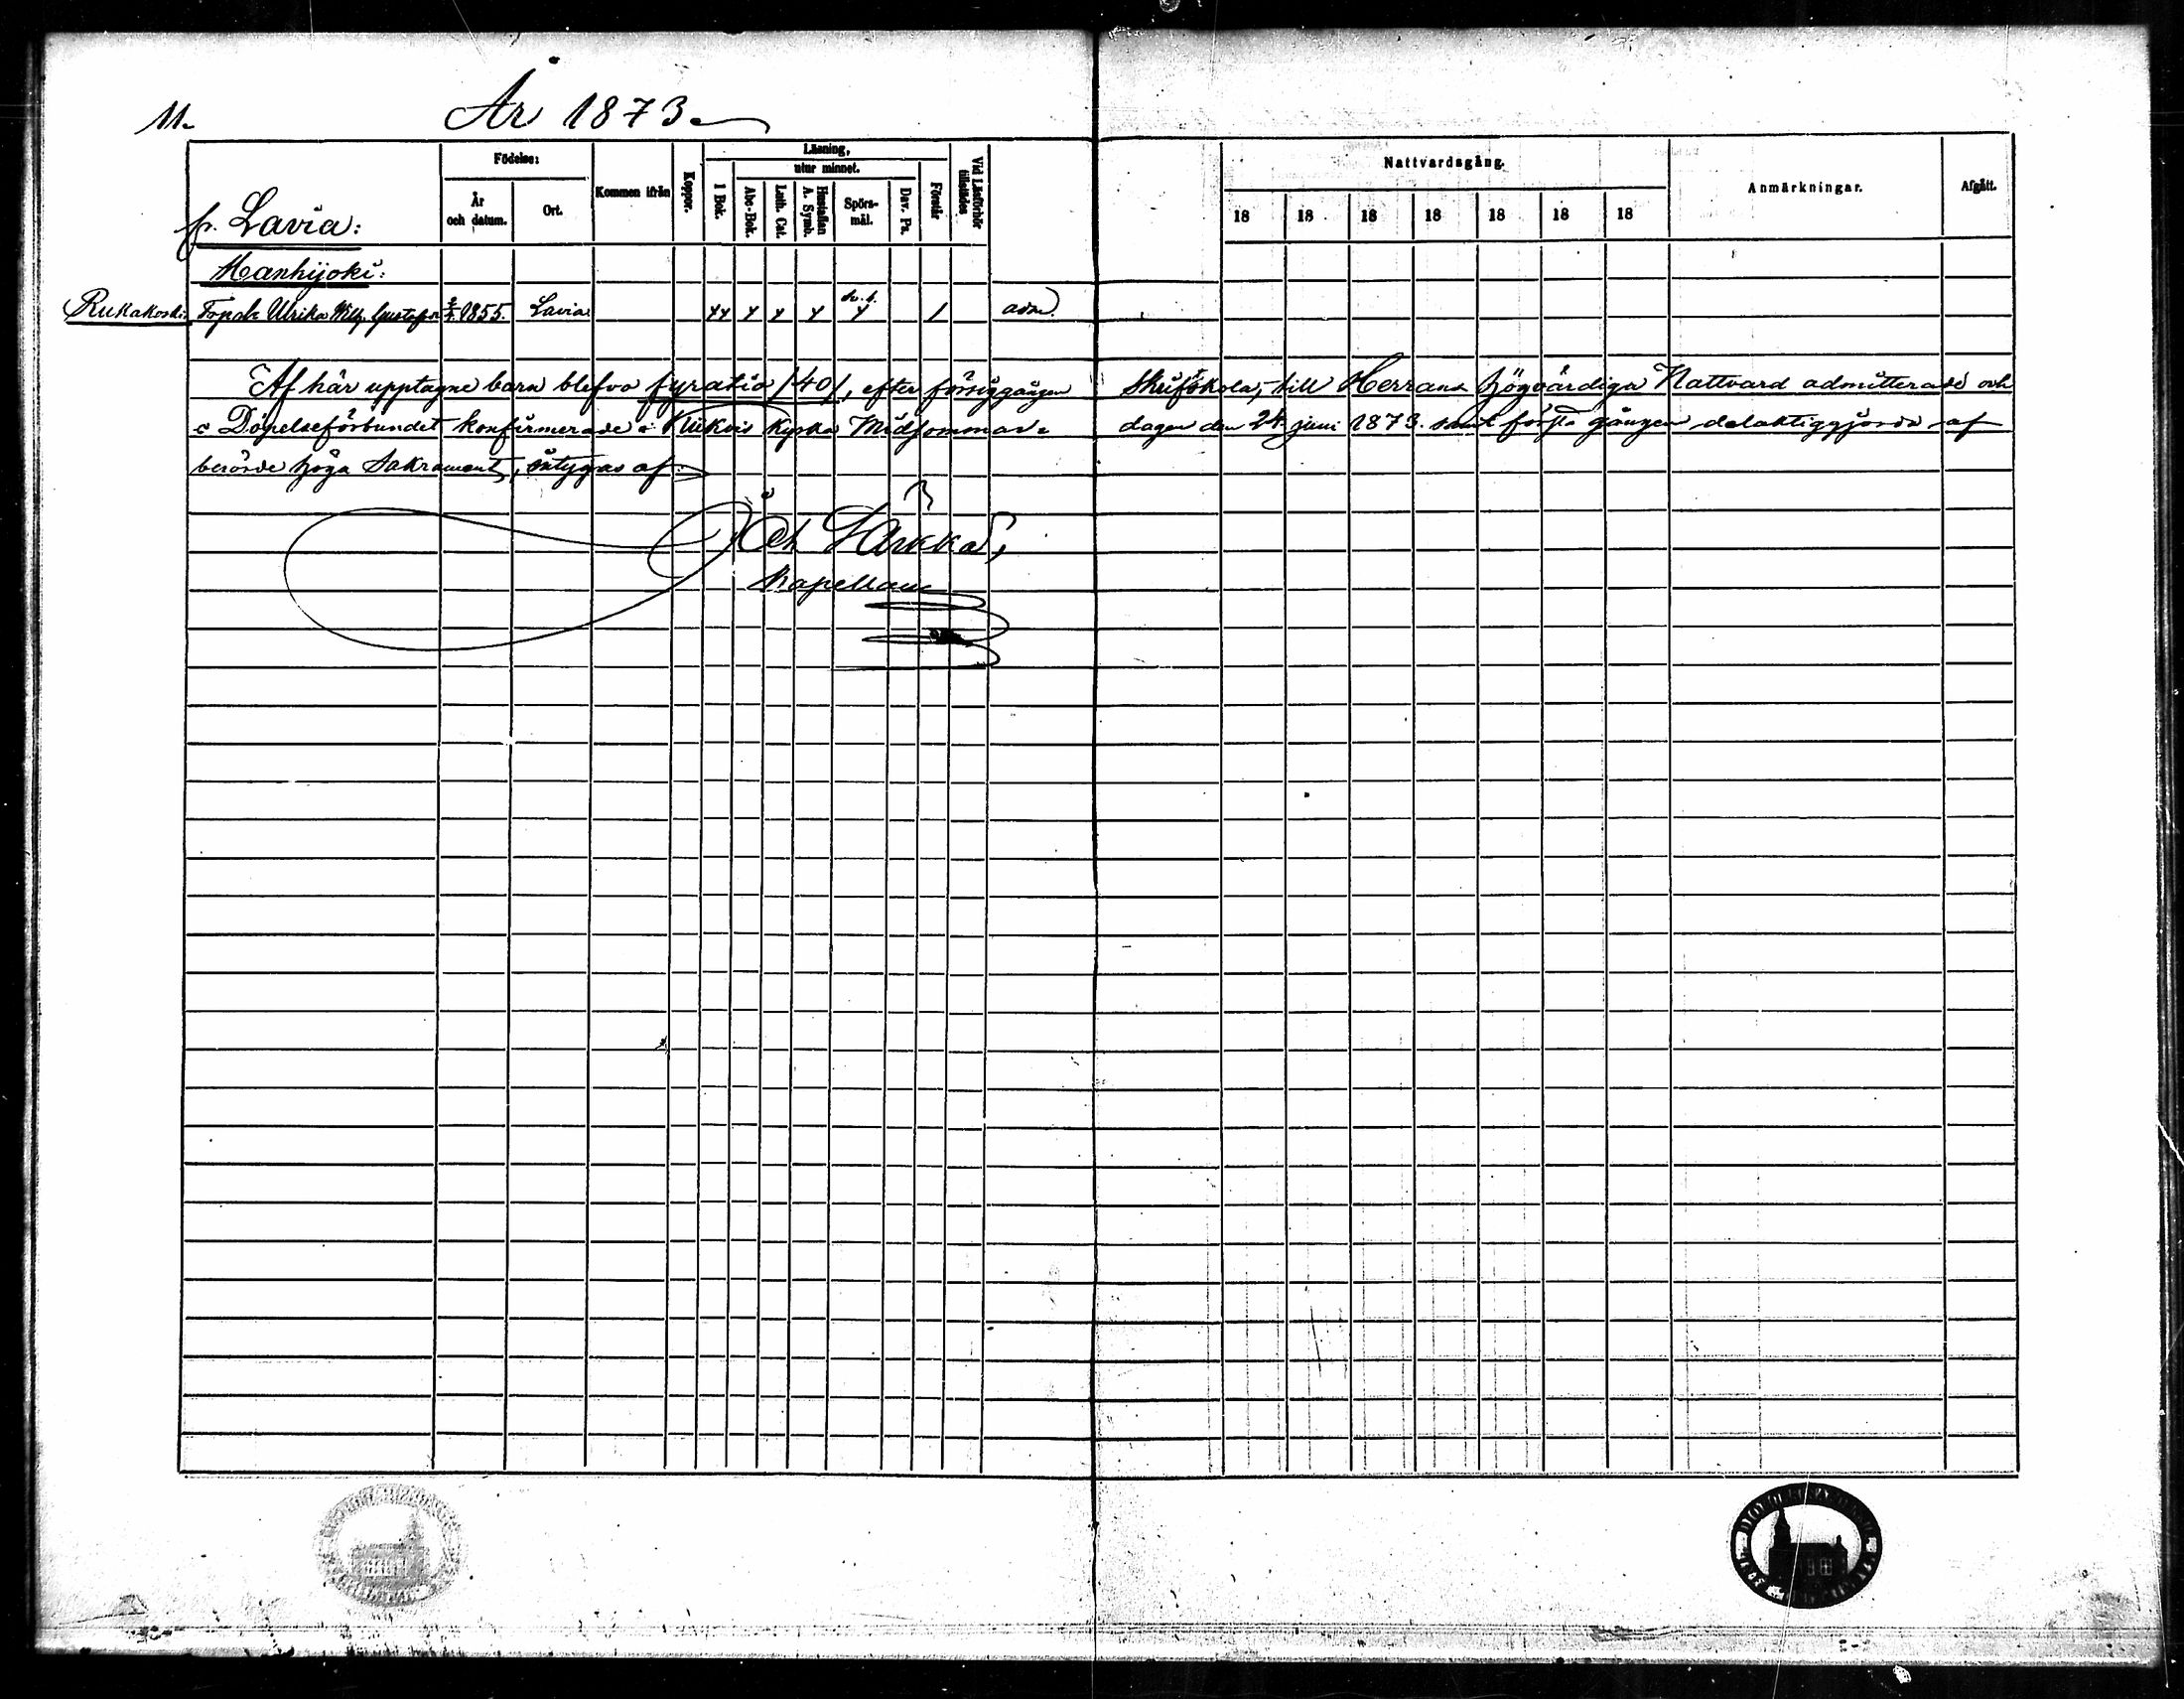 11.
År 1873.
Födelse:
Läsning,
utur minnet.
Nattvardsgång.
År och datum.
Ort.
Kommen ifrån
Koppor.
1 Bok.
Abc-Bok.
Luth. Cat.
Hustaflan A. Symb.
Spörs-mål.
Dav. Ps.
Förstår
Vid Läsförhör tillstädes
18 18 18 18 18 18 18
Anmärkningar.
Afgått.
fr. Lavia:
Manhijoki:
Rukakoski: Ulrika Wilh. 1855. Lavia 1 adm.
Af här upptagne barn blefvo fyratio /40/, efter försiggången Skriftskola, till Herrans högvärdiga Nattvard admitterade och
i Döpelseförbundet konfirmerade i Kiikois kyrka Midsommar=dagen den 24 juni 1873. samt första gången delaktiggjorda af
berörde höga Sakrament, intygas af
Joh Särkkä,
Kapellan